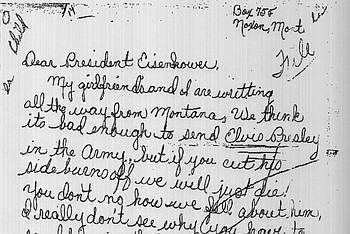 Box 755
Noxon, Mont
File
er Child
Dear President Eisenhower,
My girlfriend's and I are writting
all the way from Montana, We think
its bad enough to send Elvis Presley
in the Army, but if you cut his
side burns off we will just die!
You don't no how we fell about him,
I really don't see why you have to